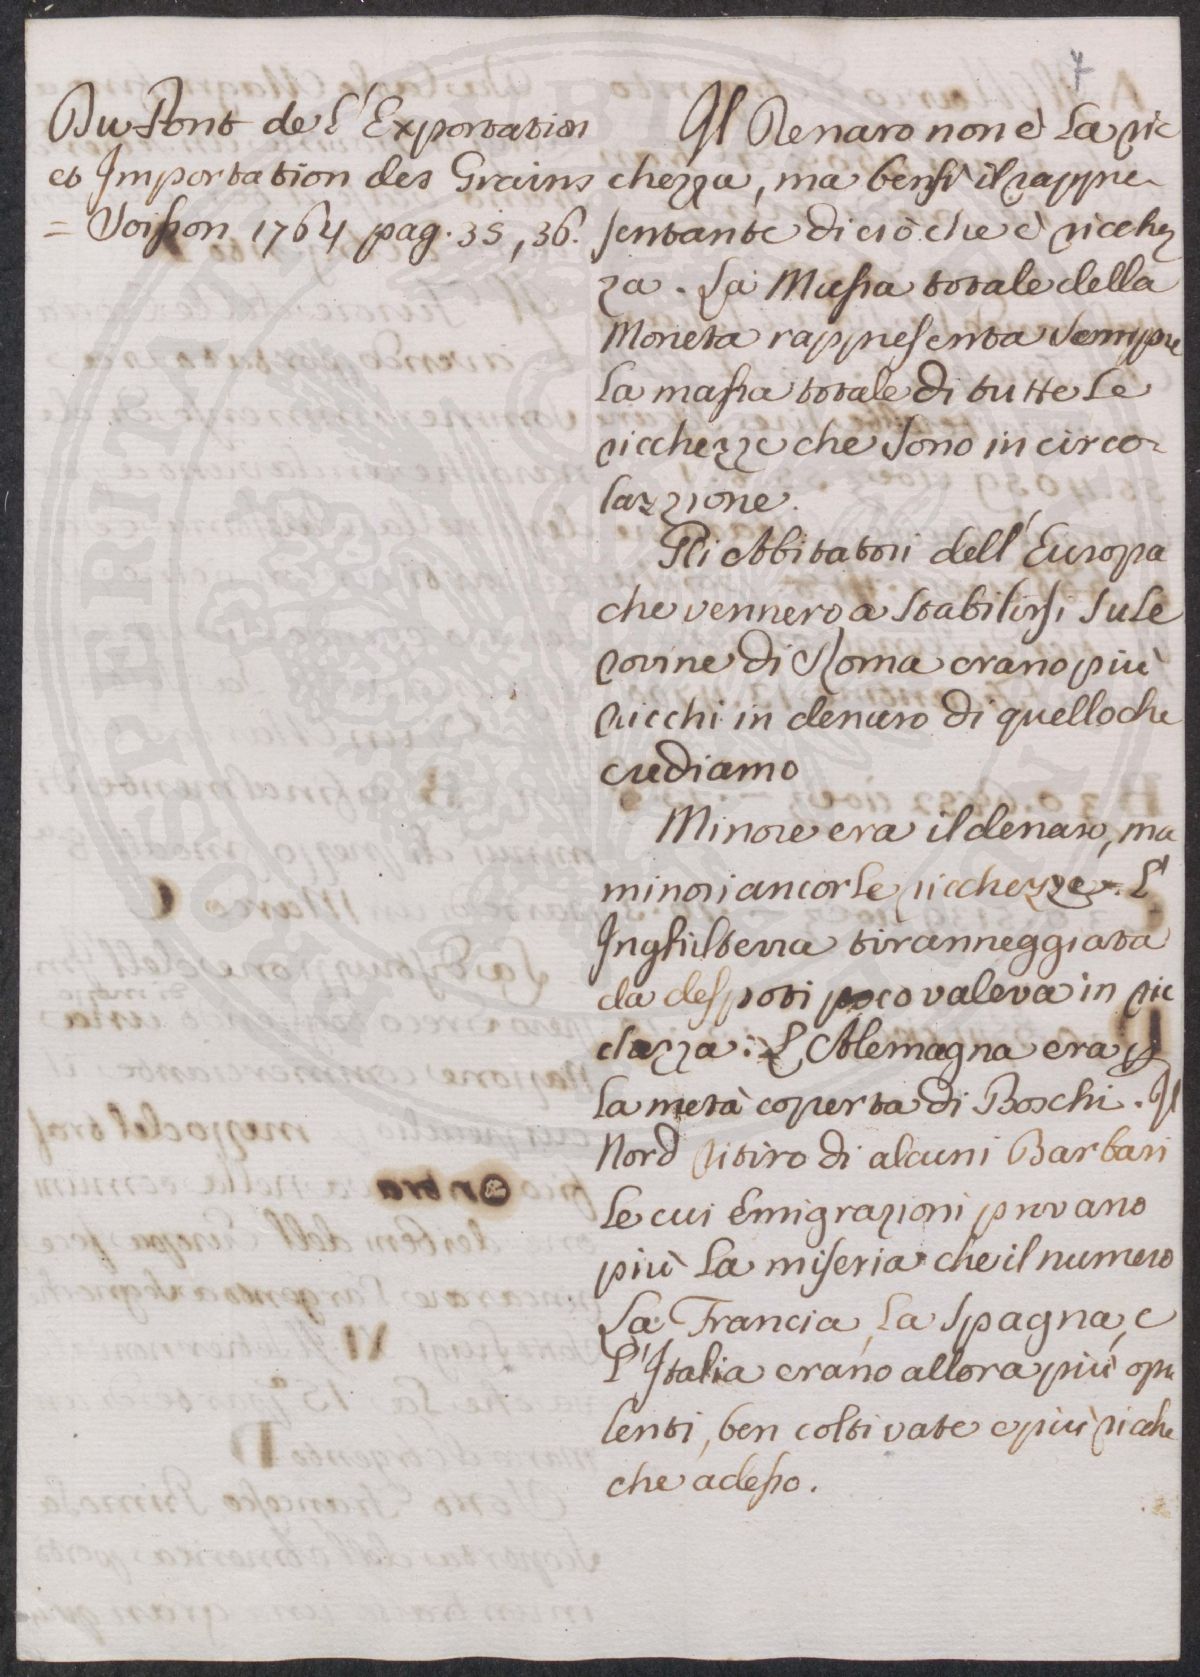 7
Du Pont de l'Exportation
et Importation des Grains
= Soisson 1764 pag. 35, 36.
Il Denaro non è la ric
chezza, ma bensì il rappre-
sentante di ciò che è ricchez
za. La Massa totale della
Moneta rappresenta sempre
la massa totale di tutte le
ricchezze che sono in circo-
lazzione.
Gli Abbitatori dell'Europa
che vennero a stabilirsi su le
rovine di Roma erano più
ricchi in denaro di quello che
crediamo
Minore era il denaro, ma
minori ancor le ricchezze. L'
Inghilterra tiranneggiata
da despoti poco valeva in ric
chezza. L'Alemagna era p
la metà coperta di Boschi. Il
Nord ritiro di alcuni Barbari
le cui emigrazioni provano
più la miseria che il numero
La Francia, la Spagna, e
l'Italia erano allora più opu
lenti, ben coltivate e più ricche
che adesso.